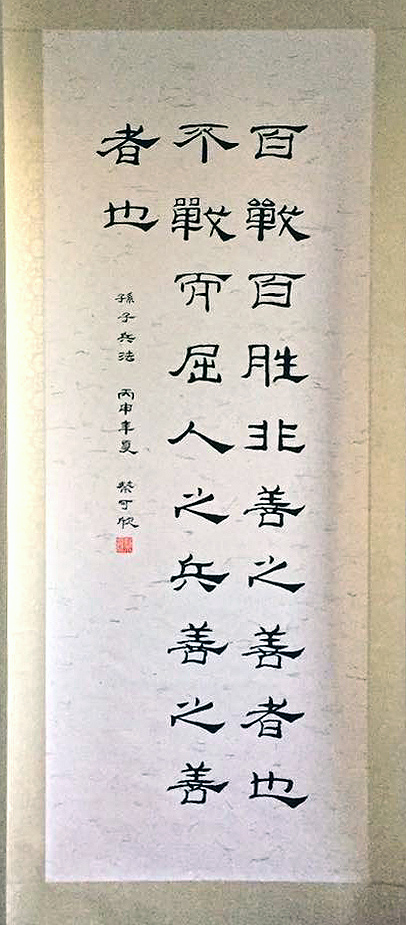 百戰百胜非善之善者也
不戰而屈人之兵善之善
者也
孫子兵法 丙申年夏 蔡可欣